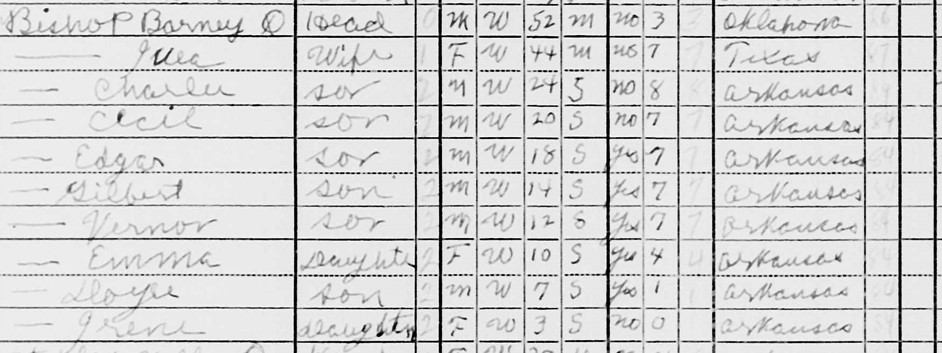 Bishop Barney O Head 0 M W 52 m no 3 3 Oklahoma 86
— Wife 1 F W 44 m no 7 7 Texas 87
— Charlie son 2 M W 24 S no 8 8 arkansas 84
— Cecil son 2 m W 20 S no 7 7 arkansas 84
— Edgar son 2 m W 18 S yes 7 7 arkansas 84
— Gilbert son 2 m W 14 S yes 7 7 arkansas 84
— Vernor son 2 m W 12 S yes 7 7 arkansas 84
— Emma Daughter 2 F W 10 S yes 4 4 arkansas 84
— Doyle son 2 m W 7 S yes 1 1 arkansas 84
— Irene Daughter 2 F W 3 S no 0 arkansas 84